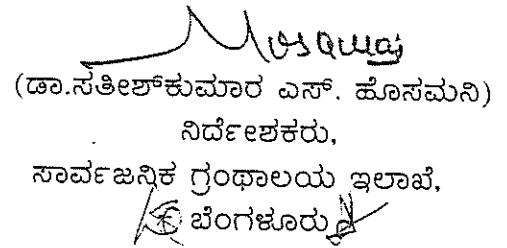 (ಡಾ.ಸತೀಶ್‌ಕುಮಾರ ಎಸ್. ಹೊಸಮನಿ)
ನಿರ್ದೇಶಕರು,
ಸಾರ್ವಜನಿಕ ಗ್ರಂಥಾಲಯ ಇಲಾಖೆ,
ಬೆಂಗಳೂರು